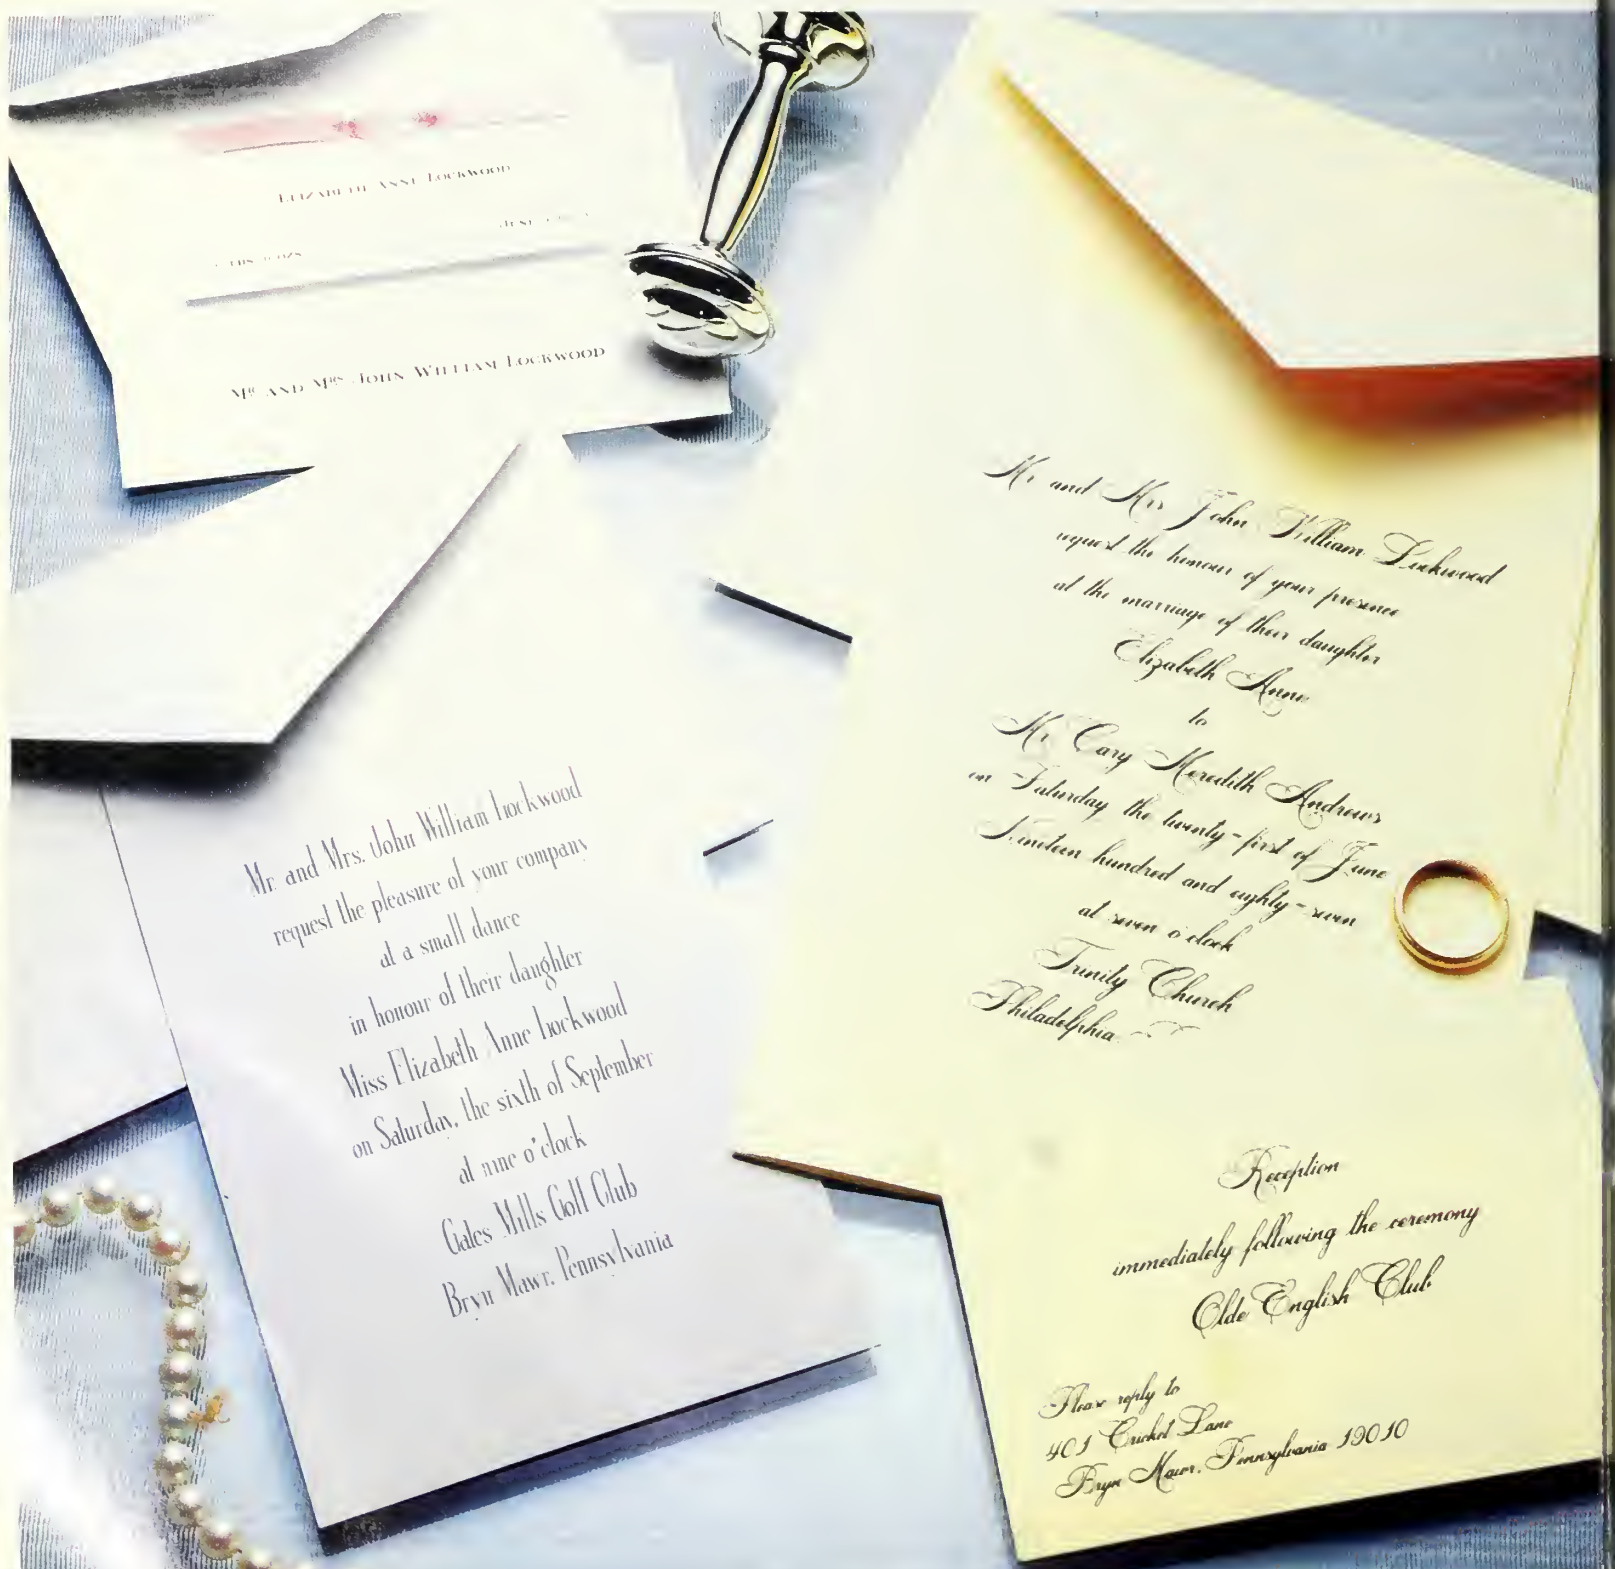 ELIZABETH ANNE LOCKWOOD
JUNE
MR AND MRS JOHN WILLIAM LOCKWOOD
Mr. and Mrs. John William Lockwood
request the pleasure of your company
at a small dance
in honour of their daughter
Miss Elizabeth Anne Lockwood
on Saturday, the sixth of September
at nine o'clock
Gates Mills Golf Club
Bryn Mawr, Pennsylvania
Mr and Mrs John William Lockwood
request the honour of your presence
at the marriage of their daughter
Elizabeth Anne
to
Mr Cary Meredith Andrews
on Saturday the twenty-first of June
Nineteen hundred and eighty-seven
at seven o'clock
Trinity Church
Philadelphia
Reception
immediately following the ceremony
Olde English Club
Please reply to
401 Cricket Lane
Bryn Mawr, Pennsylvania 19010